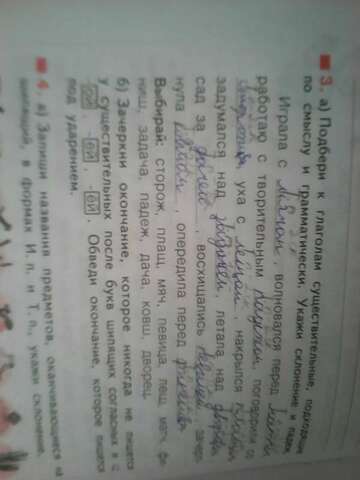 3. а) Подбери к глаголам существительные, подходящие
по смыслу и грамматически. Укажи склонение и падеж.
Играла с мячом, волновался перед
работаю с творительным падежом, поговорили со
уха с лещом, накрылся плащом
задумался над задачей, летала над
сад за дачей, восхищались певицей, зачерп-
нула ковшом, опередила перед финишем
Выбирай: сторож, плащ, мяч, певица, лещ, матч, фи-
ниш, задача, падеж, дача, ковш, дворец.
б) Зачеркни окончание, которое никогда не пишется
у существительных после букв шипящих согласных и ц
-ой, -ей, -ёй. Обведи окончание, которое пишется
под ударением.
4. а) Запиши названия предметов, оканчивающиеся на
шипящий, в формах И. п. и Т. п., укажи склонение.